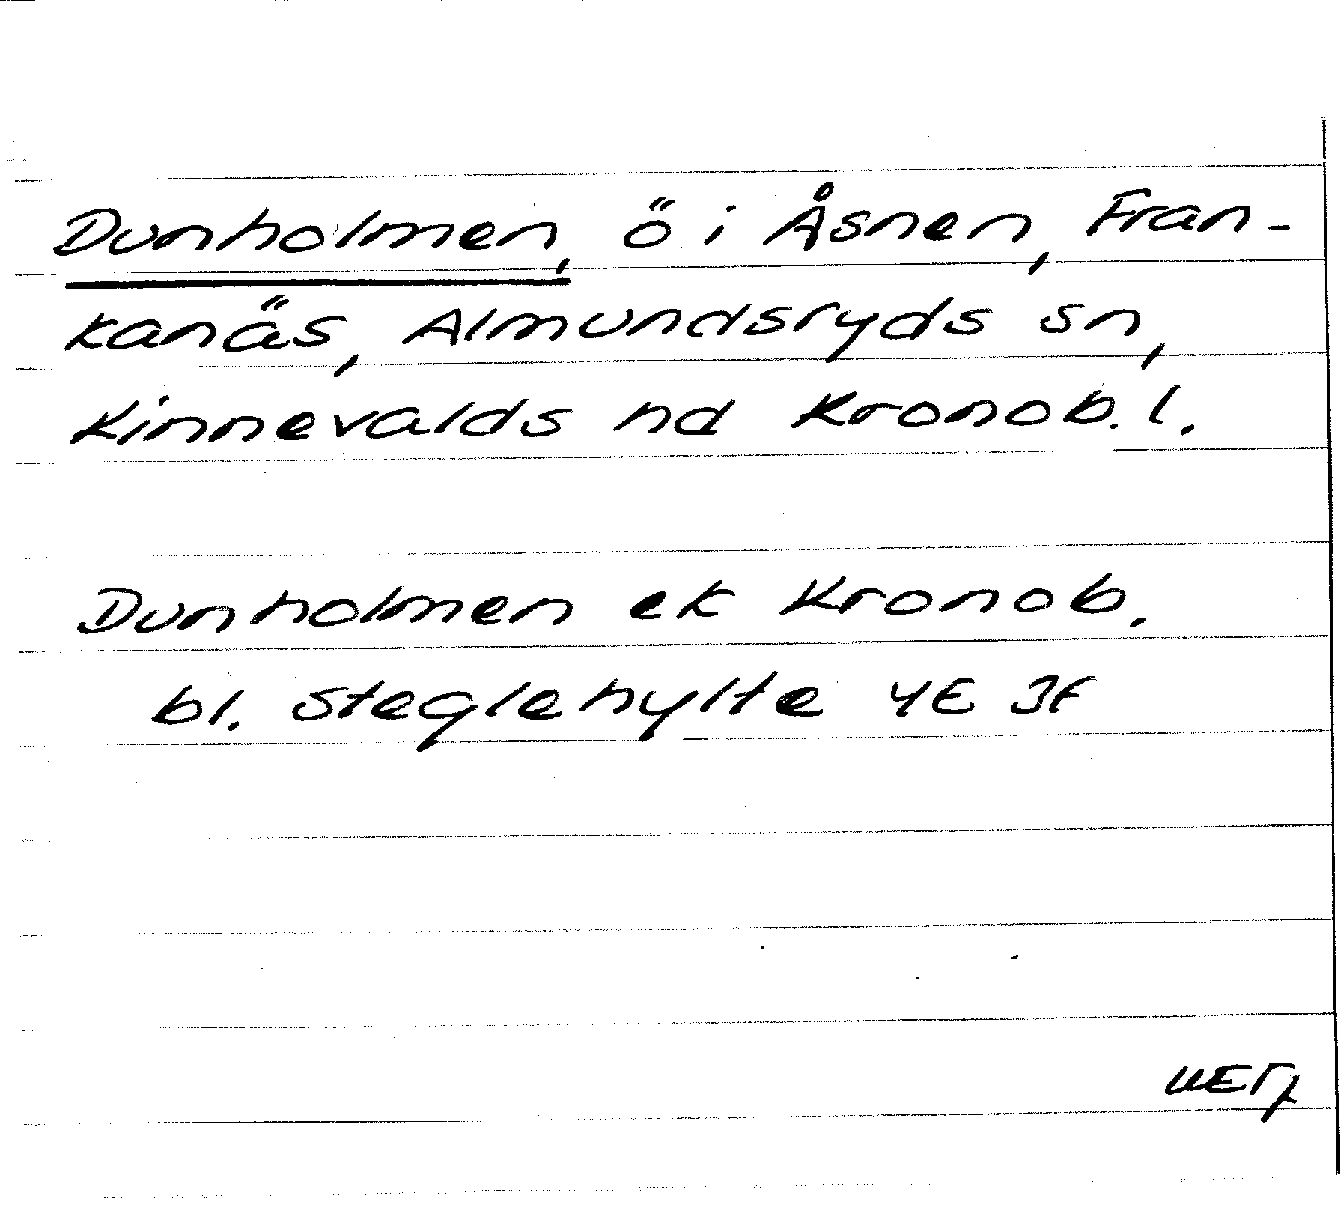 Dunholmen, ö i Åsnen, Fran-
kanäs, Almundsryds sn,
Kinnevalds hd Kronob. l.
Dunholmen ek Kronob.
bl. Steglehylte 4E 3f